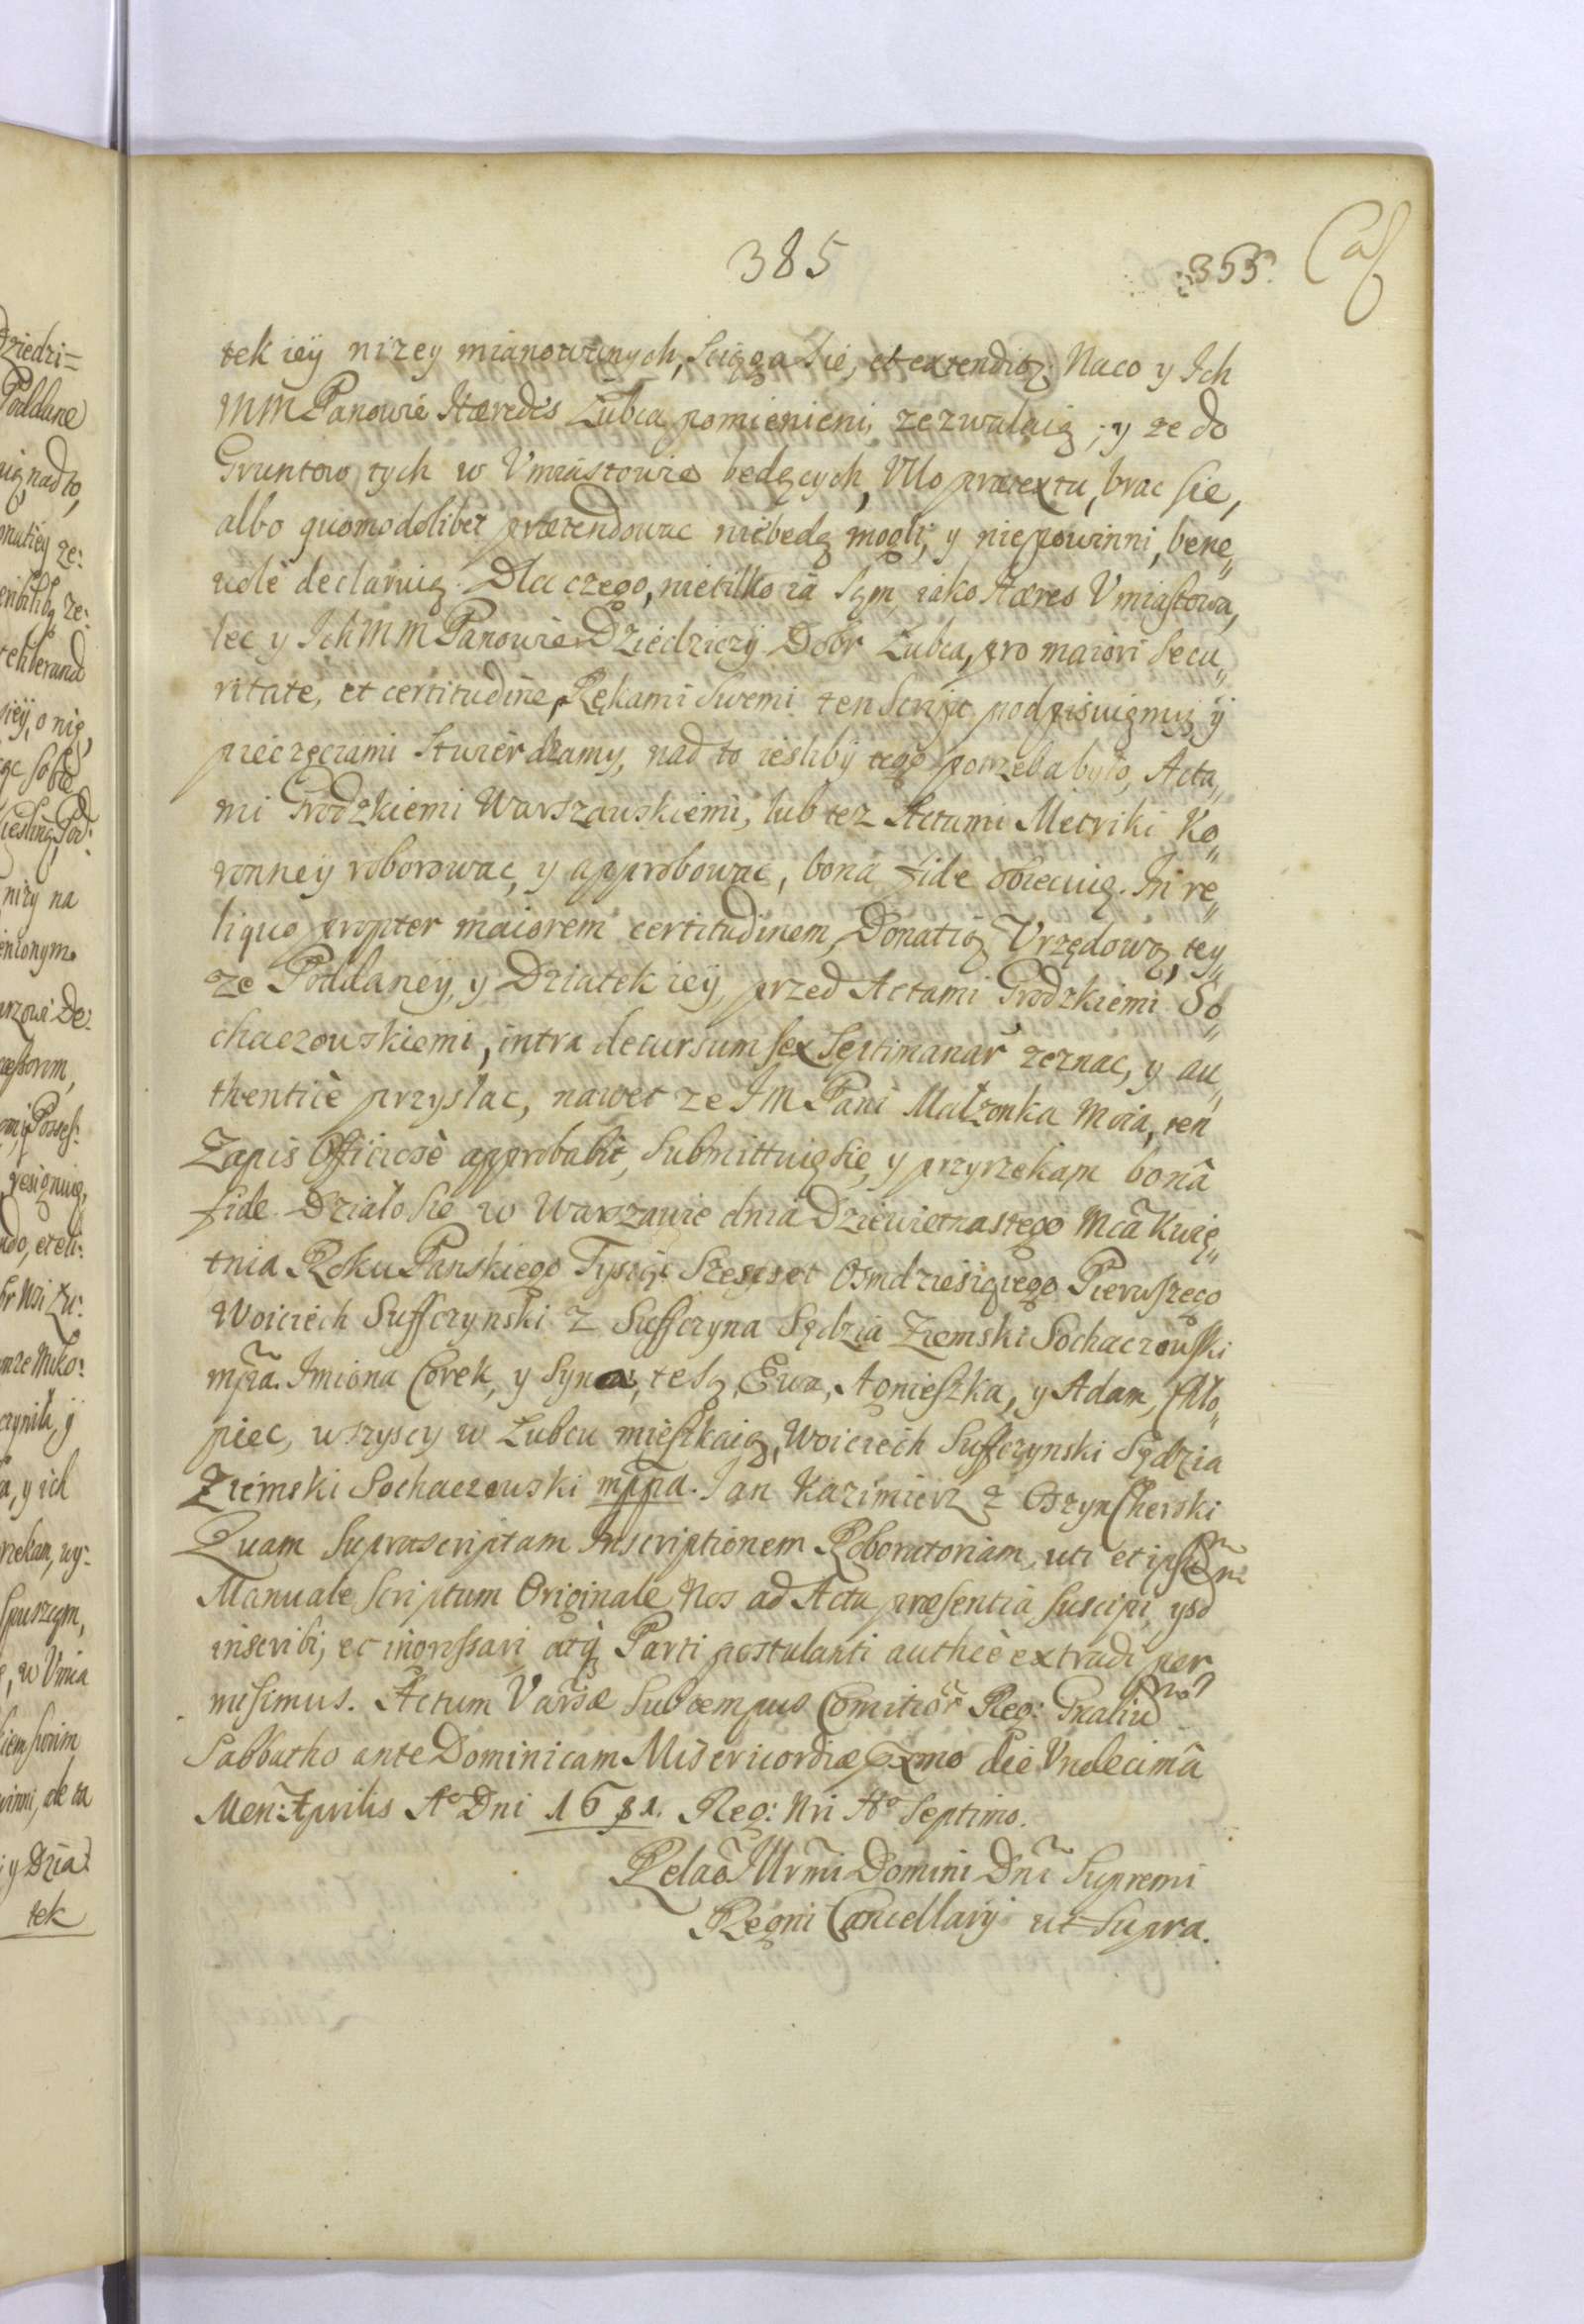 385
355.
tek iey nizey mianowanych, sciąga sie, et extenditq; Naco y Ich
MM Panowie Hæredes Łubca pomienieni, zezwalaią; y ze do
Gruntow tych w Vmiastowie będących, Vllo prætextu, brac sie,
albo quomodolibet prætendowac niebędą mogli, y niepowinni, bene„
uole declaruią. Dla czego, nietilko ia sąm, iako Hæres Vmiastowa,
lec y Ich MM Panowie Dziedziczÿ Dobr Łubca, pro maiori Secu„
ritate, et certitudine, Rękami Swemi ten Script podpisuięmy, ÿ
pieczęciami stwierdzamy, nad to iesliby tego potrzeba było, Acta„
mi Grodzkiemi Warszawskiemi, lub tez Actami Metriki Ko„
ronneÿ roborowac, y approbowac, bona fide obiecuię. In re„
liquo propter maiorem certitudinem, Donatią Vrzędową, tey„
ze Poddaneÿ, y Dziatek ieÿ, przed Actami Grodzkiemi So„
chaczowskiemi, intra decursum sex Septimanar zeznac, y au„
thenticè przysłac, nawet ze IM Pani Małzonka moia, ten
Zapis Officiosè approbabit, Submittuię sie, y przyrzekam bonâ
fide. Działo sie w Warszawie dnia Dziewiętnastego Mca Kwię„
tnia Roku Panskiego Tysiąc Szescset Osmdziesiątego Pierwszego
Woiciech Suffczynski z Suffczyna Sędzia Ziemski Sochaczowski
mpra. Imiona Corek, y Syna, te są, Ewa, Agnieszka, y Adam, Chło„
piec, wszyscy w Łubcu mieszkaią, Woiciech Suffczynski Sędzia
Ziemski Sochaczowski mppa. Jan Kazimierz z Oszyn Cherski
Quam Supruscriptam Inscriptionem Roboratoriam, uti et ipsum
Manuale Scriptum Originale Nos ad Acta præsentia suscipi, ysd
inscribi, et ingrossari atq Parti postulanti authcè extradi per
misimus. Actum Varsæ Sub tempus Comitior Reg: Gnaliu
Sabbatho ante Dominicam Misericordiæ pxmo die Vndecimâ
Men: Aprilis Ao Dni 1681. Reg: Nri Ao Septimo.
Relao Illrmi Domini Dni Supremi
Regni Cancellarÿ ut Supra.
Dziedzi=
Poddane
nad to,
o nię,
sobie
nizy na
resignuię,
y ich
w Vmia
y Dzia
tek